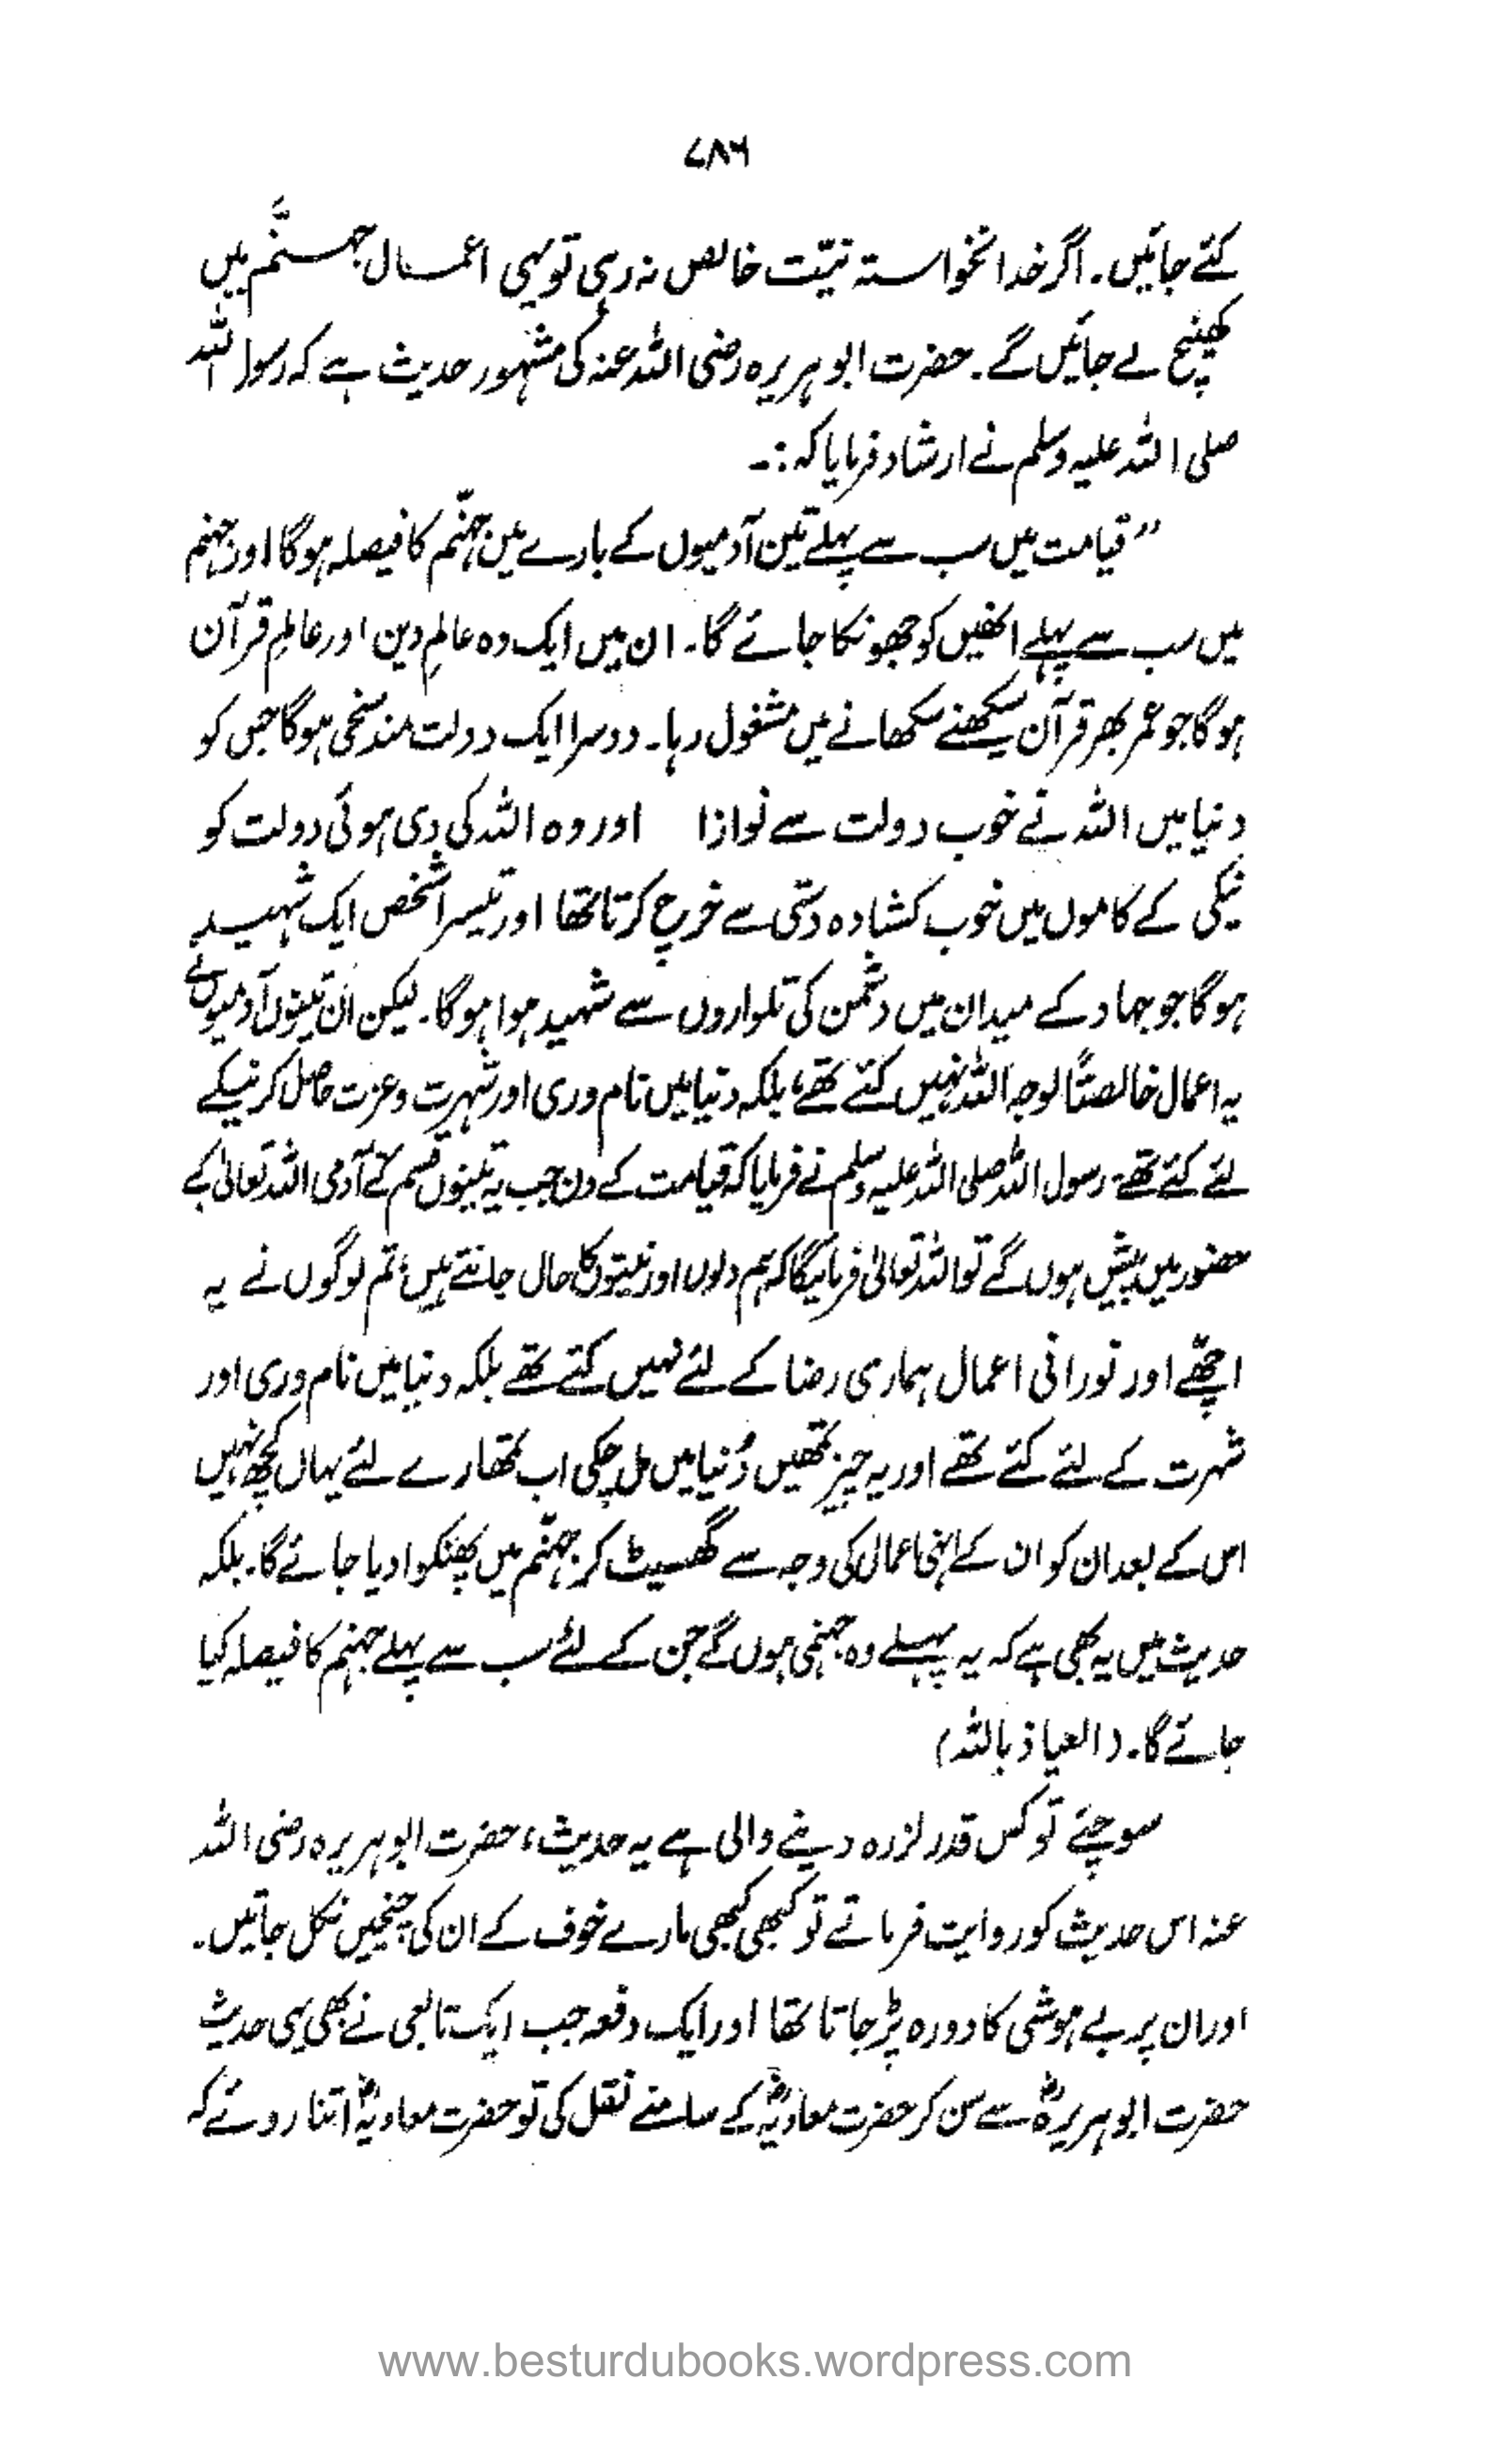 ۷۸۶
کئے جائیں۔ اگر خدانخواستہ نیّت خالص نہ رہی تو یہی اعمال جہنّم میں
کھینچ لے جائیں گے۔ حضرت ابوہریرہ رضی اللہ عنہ کی مشہور حدیث ہے کہ رسول اللہ
صلی اللہ علیہ وسلم نے ارشاد فرمایا کہ :۔
”قیامت میں سب سے پہلے تین آدمیوں کے بارے میں جہنّم کا فیصلہ ہوگا اور جہنم
میں سب سے پہلے انھیں کو جھونکا جائے گا۔ ان میں ایک وہ عالمِ دین اور عالمِ قرآن
ہوگا جو عمر بھر قرآن سیکھنے سکھانے میں مشغول رہا۔ دوسرا ایک دولت مند سخی ہوگا جس کو
دنیا میں اللہ نے خوب دولت سے نوازا اور وہ اللہ کی دی ہوئی دولت کو
نیکی کے کاموں میں خوب کشادہ دستی سے خرچ کرتا تھا اور تیسرا شخص ایک شہید
ہوگا جو جہاد کے میدان میں دشمن کی تلواروں سے شہید ہوا ہوگا۔ لیکن ان تینوں آدمیوں نے
یہ اعمال خالصتاً لوجہ اللہ نہیں کئے تھے، بلکہ دنیا میں نام وری اور شہرت و عزت حاصل کرنیکے
لئے کئے تھے۔ رسول اللہ صلی اللہ علیہ وسلم نے فرمایا کہ قیامت کے دن جب یہ تینوں قسم کے آدمی اللہ تعالیٰ کے
حضور میں پیش ہوں گے تو اللہ تعالیٰ فرمائیگا کہ ہم دلوں اور نیتوں کا حال جانتے ہیں، تم لوگوں نے یہ
اچھّے اور نورانی اعمال ہماری رضا کے لئے نہیں کئے تھے بلکہ دنیا میں نام وری اور
شہرت کے لئے کئے تھے اور یہ چیز تمھیں دُنیا میں مل چکی اب تمھارے لئے یہاں کچھ نہیں
اس کے بعد ان کو ان کے انہی اعمال کی وجہ سے گھسیٹ کر جہنّم میں پھنکوا دیا جائے گا۔ بلکہ
حدیث میں یہ بھی ہے کہ یہ پہلے وہ جہنمی ہوں گے جن کے لئے سب سے پہلے جہنم کا فیصلہ کیا
جائے گا۔ (العیاذ باللہ)
سوچئے تو کس قدر لرزہ دینے والی ہے یہ حدیث، حضرت ابوہریرہ رضی اللہ
عنہ اس حدیث کو روایت فرماتے تو کبھی کبھی مارے خوف کے ان کی چیخیں نکل جاتیں۔
اور ان پر بے ہوشی کا دورہ پڑ جاتا تھا اور ایک دفعہ جب ایک تابعی نے بھی یہی حدیث
حضرت ابوہریرہؓ سے سن کر حضرت معاویہؓ کے سامنے نقل کی تو حضرت معاویہؓ اتنا روئے کہ
www.besturdubooks.wordpress.com